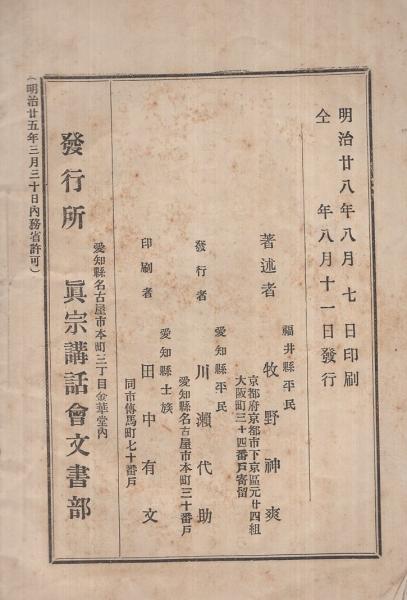 明治廿八年八月七日印刷
仝年八月十一日發行
福井縣平民
著述者 牧野神爽
京都府京都市下京區元廿四組
大阪町三十四番戶寄留
愛知縣平民
發行者 川瀬代助
愛知縣名古屋市本町三十番戶
愛知縣士族
印刷者 田中有文
同市傳馬町七十番戶
愛知縣名古屋市本町三丁目金華堂內
發行所 眞宗講話會文書部
(明治廿五年三月三十日內務省許可)